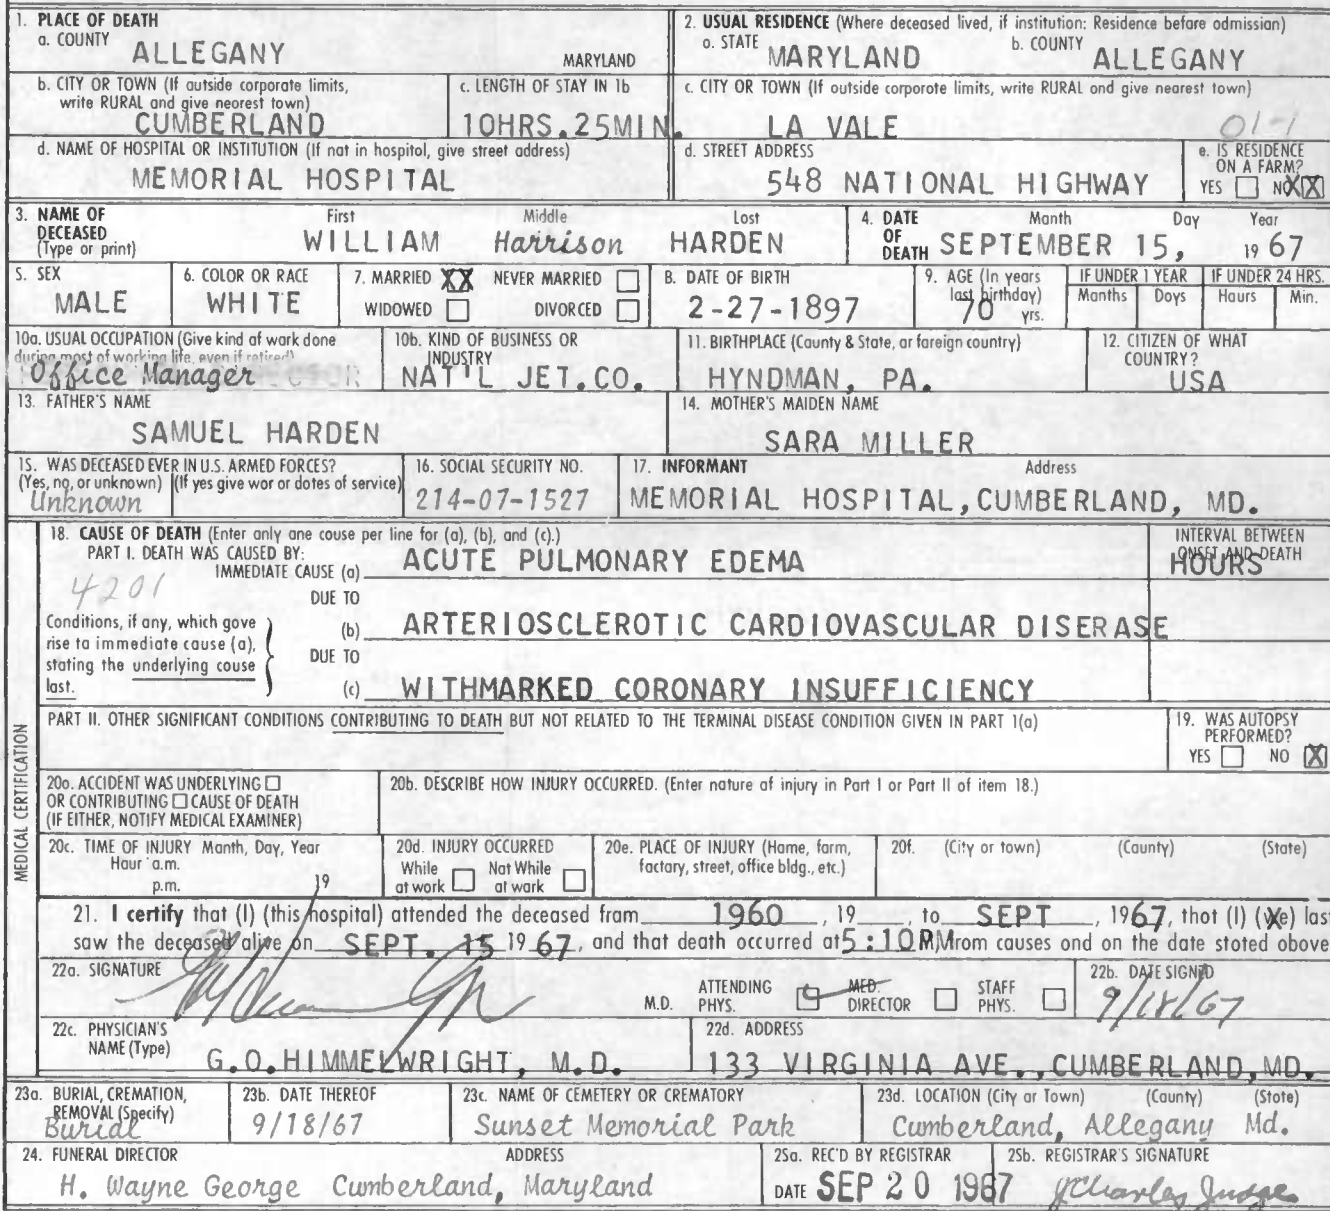 1. PLACE OF DEATH
a. COUNTY ALLEGANY MARYLAND
2. USUAL RESIDENCE (Where deceased lived, if institution: Residence before admission)
a. STATE MARYLAND b. COUNTY ALLEGANY
b. CITY OR TOWN (If outside corporate limits,
write RURAL and give nearest town)
CUMBERLAND
c. LENGTH OF STAY IN 1b
10HRS.25MIN.
c. CITY OR TOWN (If outside corporate limits, write RURAL and give nearest town)
LA VALE 01-1
d. NAME OF HOSPITAL OR INSTITUTION (If not in hospital, give street address)
MEMORIAL HOSPITAL
d. STREET ADDRESS
548 NATIONAL HIGHWAY
e. IS RESIDENCE
ON A FARM?
YES NO XX
3. NAME OF
DECEASED
(Type or print)
First Middle Last
WILLIAM Harrison HARDEN
4. DATE
OF
DEATH
Month Day Year
SEPTEMBER 15, 19 67
5. SEX
MALE
6. COLOR OR RACE
WHITE
7. MARRIED XX NEVER MARRIED
WIDOWED DIVORCED
8. DATE OF BIRTH
2-27-1897
9. AGE (In years
last birthday)
70 yrs.
IF UNDER 1 YEAR
Months Days
IF UNDER 24 HRS.
Hours Min.
10a. USUAL OCCUPATION (Give kind of work done
during most of working life, even if retired)
Office Manager
10b. KIND OF BUSINESS OR
INDUSTRY
NAT'L JET.CO.
11. BIRTHPLACE (County & State, or foreign country)
HYNDMAN, PA.
12. CITIZEN OF WHAT
COUNTRY?
USA
13. FATHER'S NAME
SAMUEL HARDEN
14. MOTHER'S MAIDEN NAME
SARA MILLER
15. WAS DECEASED EVER IN U.S. ARMED FORCES?
(Yes, no, or unknown) (If yes give war or dates of service)
Unknown
16. SOCIAL SECURITY NO.
214-07-1527
17. INFORMANT Address
MEMORIAL HOSPITAL, CUMBERLAND, MD.
MEDICAL CERTIFICATION
18. CAUSE OF DEATH (Enter only one cause per line for (a), (b), and (c).)
PART I. DEATH WAS CAUSED BY:
IMMEDIATE CAUSE (a) ACUTE PULMONARY EDEMA
INTERVAL BETWEEN
ONSET AND DEATH
HOURS
4201
DUE TO
Conditions, if any, which gave
rise to immediate cause (a),
stating the underlying cause
last.
(b) ARTERIOSCLEROTIC CARDIOVASCULAR DISERASE
DUE TO
(c) WITHMARKED CORONARY INSUFFICIENCY
PART II. OTHER SIGNIFICANT CONDITIONS CONTRIBUTING TO DEATH BUT NOT RELATED TO THE TERMINAL DISEASE CONDITION GIVEN IN PART 1(a)
19. WAS AUTOPSY
PERFORMED?
YES NO X
20a. ACCIDENT WAS UNDERLYING
OR CONTRIBUTING CAUSE OF DEATH
(IF EITHER, NOTIFY MEDICAL EXAMINER)
20b. DESCRIBE HOW INJURY OCCURRED. (Enter nature of injury in Part I or Part II of item 18.)
20c. TIME OF INJURY Month, Day, Year
Hour a.m.
p.m. 19
20d. INJURY OCCURRED
While Not While
at work at work
20e. PLACE OF INJURY (Home, farm,
factory, street, office bldg., etc.)
20f. (City or town) (County) (State)
21. I certify that (I) (this hospital) attended the deceased from 1960, 19 , to SEPT, 1967, that (I) (we) last
saw the deceased alive on SEPT. 15 1967, and that death occurred at 5:10PM from causes and on the date stated above
22a. SIGNATURE
M.D.
ATTENDING
PHYS.
MED.
DIRECTOR
STAFF
PHYS.
22b. DATE SIGNED
9/18/67
22c. PHYSICIAN'S
NAME (Type)
G.O.HIMMELWRIGHT, M.D.
22d. ADDRESS
133 VIRGINIA AVE., CUMBERLAND, MD.
23a. BURIAL, CREMATION,
REMOVAL (Specify)
Burial
23b. DATE THEREOF
9/18/67
23c. NAME OF CEMETERY OR CREMATORY
Sunset Memorial Park
23d. LOCATION (City or Town) (County) (State)
Cumberland, Allegany Md.
24. FUNERAL DIRECTOR ADDRESS
H. Wayne George Cumberland, Maryland
25a. REC'D BY REGISTRAR
DATE SEP 20 1967
25b. REGISTRAR'S SIGNATURE
J Charles Judge